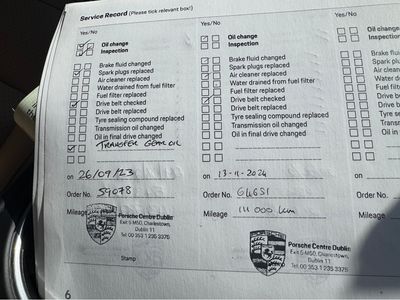 Service Record (Please tick relevant box!)
Yes/No
Oil change
Inspection
Brake fluid changed
Spark plugs replaced
Air cleaner replaced
Water drained from fuel filter
Fuel filter replaced
Drive belt checked
Drive belt replaced
Tyre sealing compound replaced
Transmission oil changed
Oil in final drive changed
TRANSFER GEAR OIL
on 26/09/23
Order No. 59078
Mileage
Porsche Centre Dublin
Exit 5 M50, Charlestown,
Dublin 11
Tel: 00 353 1 235 3375
Stamp
6
Yes/No
Oil change
Inspection
Brake fluid changed
Spark plugs replaced
Air cleaner replaced
Water drained from fuel filter
Fuel filter replaced
Drive belt checked
Drive belt replaced
Tyre sealing compound replaced
Transmission oil changed
Oil in final drive changed
on 13-11-2024
Order No.
Mileage 111 000 km
Porsche Centre Dublin
Exit 5 M50, Charlestown,
Dublin 11
Tel: 00 353 1 235 3375
Yes/No
Oil
Insp
Brake fluid
Spark plugs
Air cleaner
Water drain
Fuel filter
Drive belt
Drive belt
Tyre sealin
Transmiss
Oil in final
on
Order No.
Mileage